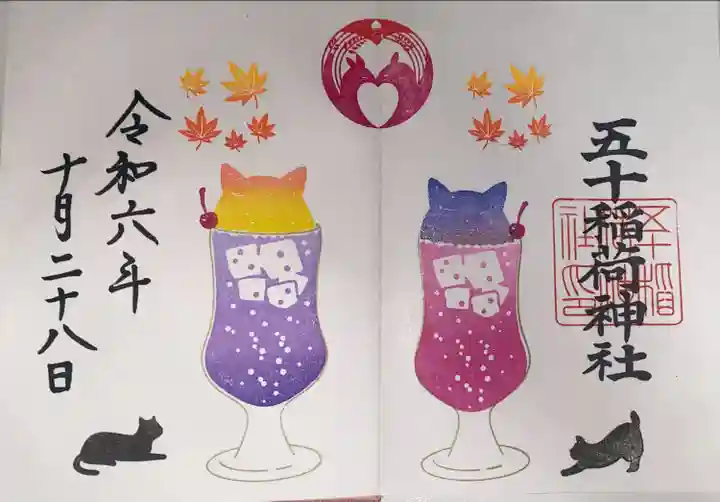 五十稲荷神社
令和六年
十月二十八日